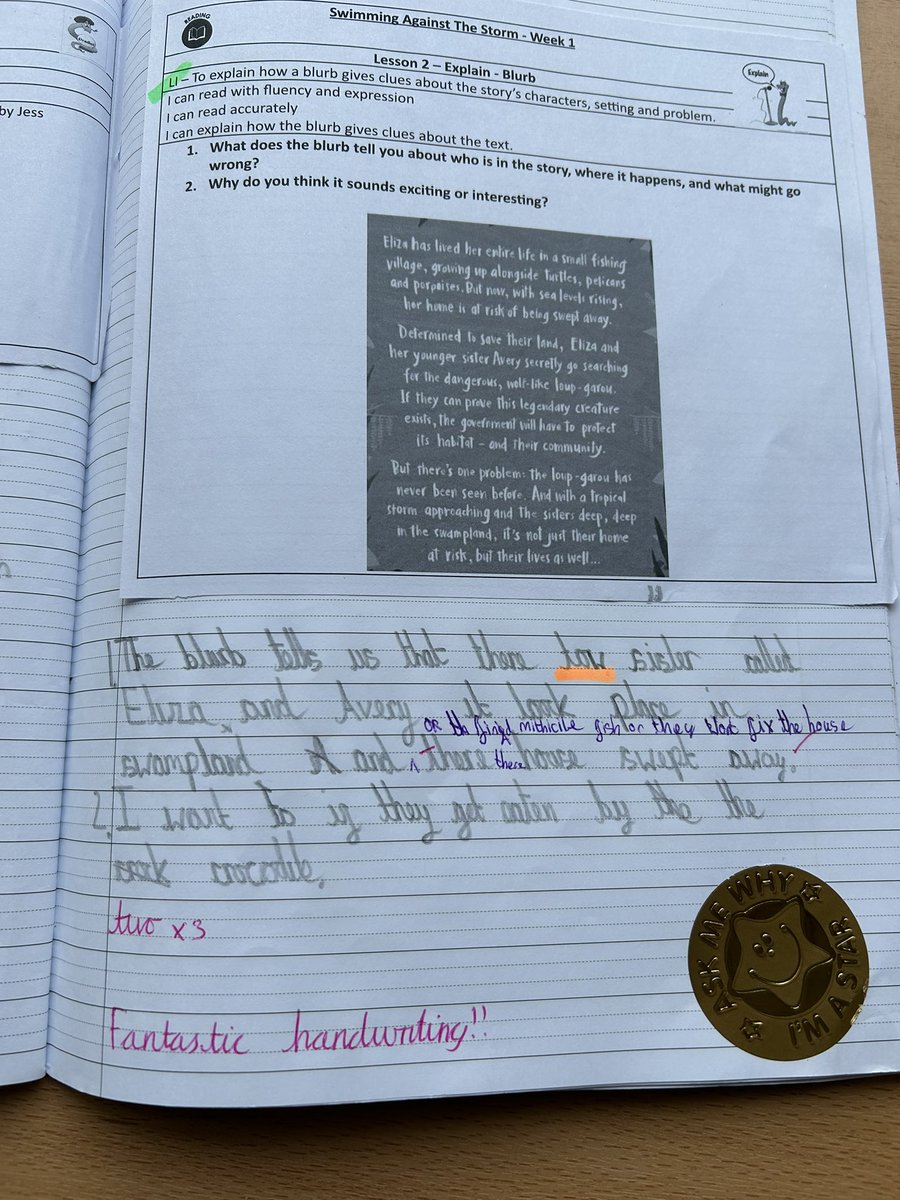 by Jess
READING
Swimming Against The Storm - Week 1
Lesson 2 – Explain - Blurb
Explain
LI – To explain how a blurb gives clues about the story's characters, setting and problem.
I can read with fluency and expression
I can read accurately
I can explain how the blurb gives clues about the text.
1. What does the blurb tell you about who is in the story, where it happens, and what might go
wrong?
2. Why do you think it sounds exciting or interesting?
Eliza has lived her entire life in a small fishing
village, growing up alongside turtles, pelicans
and porpoises. But now, with sea levels rising,
her home is at risk of being swept away.
Determined to save their land, Eliza and
her younger sister Avery secretly go searching
for the dangerous, wolf-like loup-garou.
If they can prove this legendary creature
exists, the government will have to protect
its habitat – and their community.
But there's one problem: the loup-garou has
never been seen before. And with a tropical
storm approaching and the sisters deep, deep
in the swampland, it's not just their home
at risk, but their lives as well...
1 The blurb tells us that there tow sister called
Eliza and Avery it look place in
or mithicile or they the house
swampland and there there house swept away.
2. I want to if they get eaten by the the
crocodile.
two x 3
Fantastic handwriting!!
ASK ME WHY
I'M A STAR